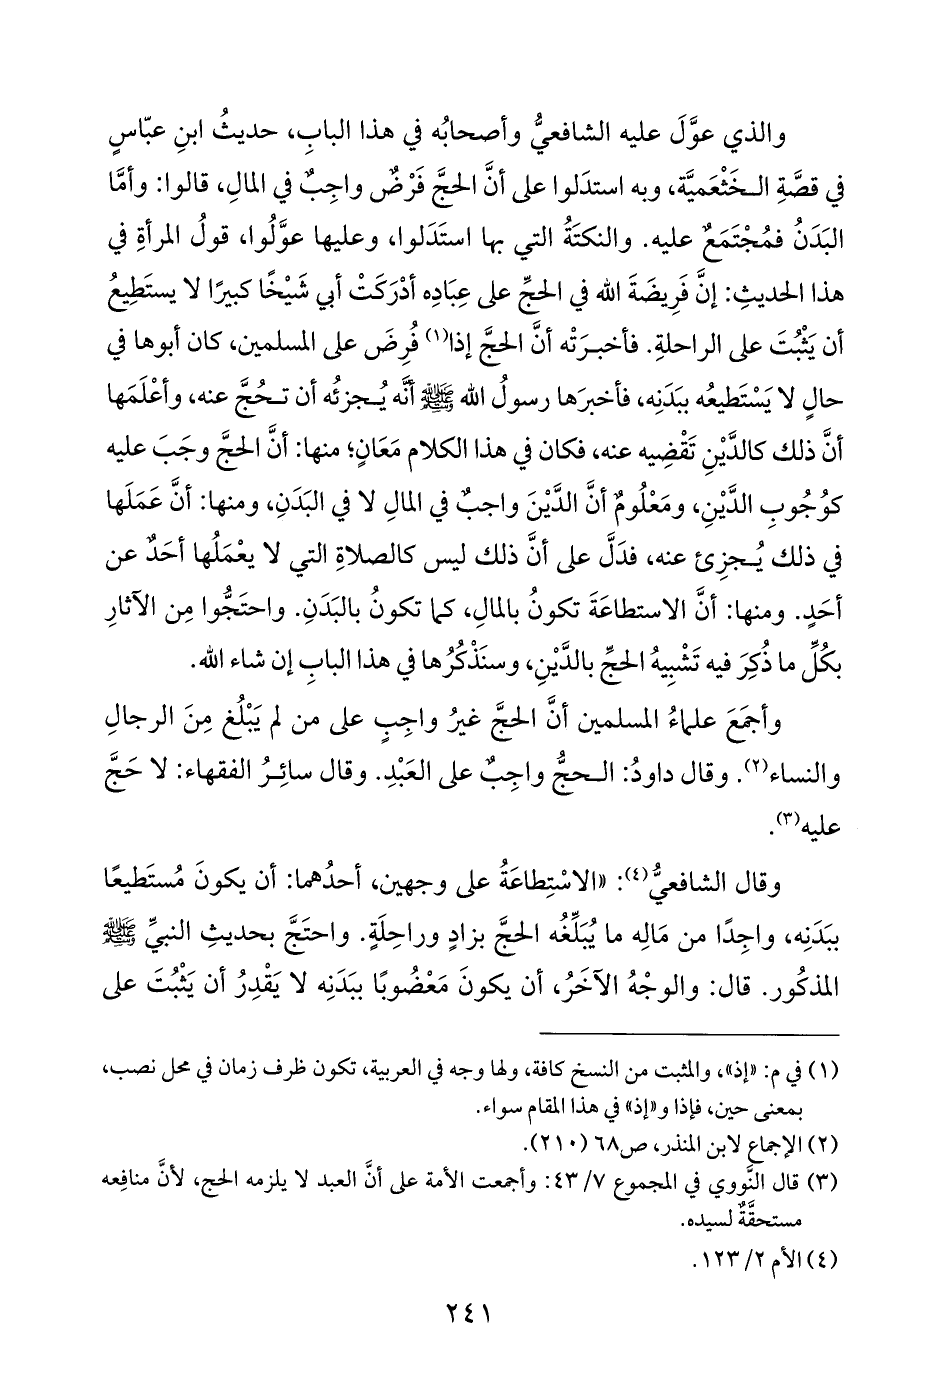 والذي عوَّلَ عليه الشافعيُّ وأصحابُه في هذا البابِ، حديثُ ابنِ عبّاسٍ
في قصَّةِ الخَثْعَميَّة، وبه استدَلوا على أنَّ الحجَّ فَرْضٌ واجِبٌ في المالِ، قالوا: وأمَّا
البَدَنُ فمُجْتَمَعٌ عليه. والنكتَةُ التي بها استَدَلوا، وعليها عوَّلُوا، قولُ المرأةِ في
هذا الحديثِ: إنَّ فَرِيضَةَ الله في الحجِّ على عِبَادِه أدْرَكَتْ أبي شَيْخًا كبيرًا لا يستَطِيعُ
أن يَثْبُتَ على الراحلةِ. فأخبرَتْه أنَّ الحجَّ إذا(١) فُرِضَ على المسلمين، كان أبوها في
حالٍ لا يَسْتَطيعُه ببَدَنِه، فأخبرَها رسولُ الله ﷺ أنَّه يُجزئُه أن تحُجَّ عنه، وأعْلَمَها
أنَّ ذلك كالدَّيْنِ تَقْضِيه عنه، فكان في هذا الكلام مَعَانٍ؛ منها: أنَّ الحجَّ وجَبَ عليه
كوُجُوبِ الدَّيْنِ، ومَعْلُومٌ أنَّ الدَّيْنَ واجبٌ في المالِ لا في البَدَنِ، ومنها: أنَّ عَمَلَها
في ذلك يُجزِئ عنه، فدَلَّ على أنَّ ذلك ليس كالصلاةِ التي لا يعْمَلُها أحَدٌ عن
أحَدٍ. ومنها: أنَّ الاستطاعَةَ تكونُ بالمالِ، كما تكونُ بالبَدَنِ. واحتَجُّوا مِن الآثارِ
بكُلِّ ما ذُكِرَ فيه تَشْبِيهُ الحجِّ بالدَّيْنِ، وسنَذْكُرُها في هذا البابِ إن شاء الله.
وأجمَعَ علماءُ المسلمين أنَّ الحجَّ غيرُ واجِبٍ على من لم يَبْلُغ مِنَ الرجالِ
والنساء(٢). وقال داودُ: الحجُّ واجِبٌ على العَبْدِ. وقال سائِرُ الفقهاء: لا حَجَّ
عليه(٣).
وقال الشافعيُّ(٤): «الاسْتِطاعَةُ على وجهين، أحدُهما: أن يكونَ مُستَطيعًا
ببَدَنِه، واجِدًا من مَالِه ما يُبَلِّغُه الحجَّ بزادٍ وراحِلَةٍ. واحتَجَّ بحديثِ النبيِّ ﷺ
المذكُور. قال: والوجْهُ الآخَرُ، أن يكونَ مَعْضُوبًا ببَدَنِه لا يَقْدِرُ أن يَثْبُتَ على
(١) في م: «إذ»، والمثبت من النسخ كافة، ولها وجه في العربية، تكون ظرف زمان في محل نصب،
بمعنى حين، فإذا و«إذ» في هذا المقام سواء.
(٢) الإجماع لابن المنذر، ص٦٨ (٢١٠).
(٣) قال النَّووي في المجموع ٧/ ٤٣: وأجمعت الأمة على أنَّ العبد لا يلزمه الحج، لأنَّ منافِعه
مستحقَّةٌ لسيده.
(٤) الأم ٢/ ١٢٣.
٢٤١